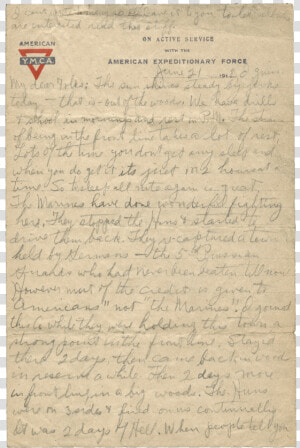 AMERICAN
YMCA
ON ACTIVE SERVICE
WITH THE
AMERICAN EXPEDITIONARY FORCE
June 21 191
My dear Folks: The sun shines
today — that is out of the woods. We have drills
& school in mornings and rest in P.M. The strain
of being in the front line
Lots of the time you don't get any sleep and
when you do get it its just in 2 hours at a
time. So to sleep all nite again is great.
The Marines have done wonderful fighting
here. They stopped the Huns & started to
drive them back. They recaptured a town
held by Germans — the 5th Prussian
Guards who had never been beaten till now
However most of the credit is given to
"Americans" not "The Marines".
this to while they were holding this town a
strong point in the front line. Stayed
there 2 days, then came back in wood
in reserve a while. Then 2 days more
in front line in a big woods. The Huns
were on 3 sides & fired on us continually
It was 2 days of Hell. When people tell you